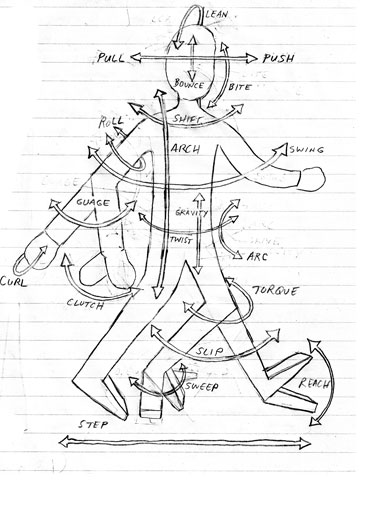 LEAN
PULL
PUSH
BOUNCE
BITE
SWIFT
ROLL
ARCH
SWING
GUAGE
GRAVITY
TWIST
ARC
CURL
CLUTCH
TORQUE
SLIP
SWEEP
REACH
STEP